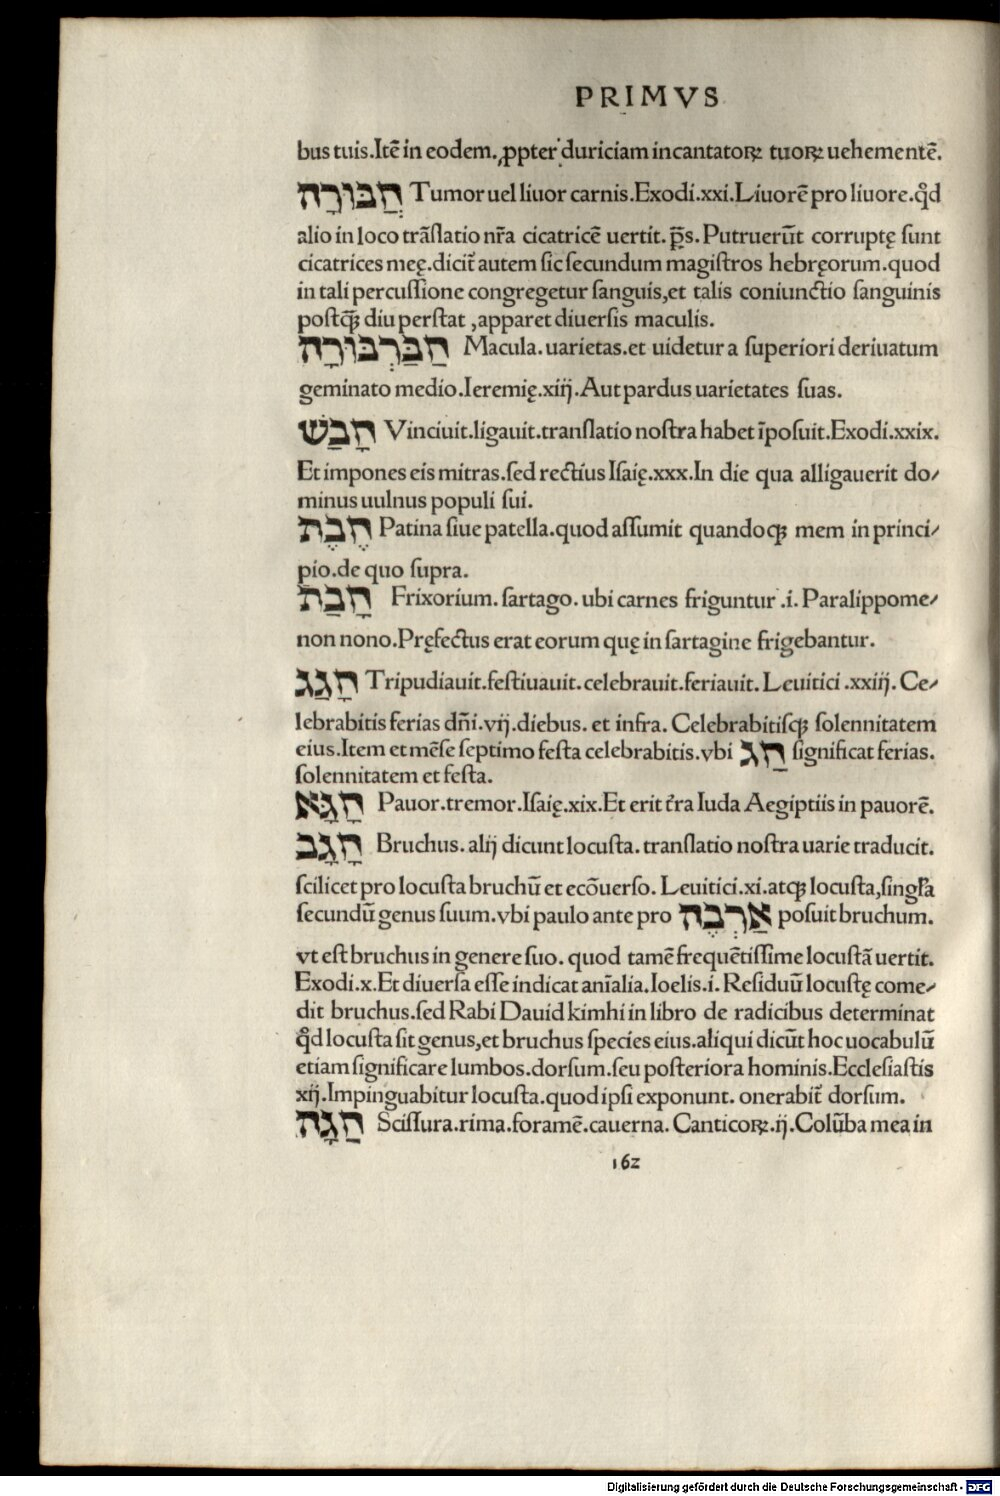 PRIMVS
bus tuis.Itē in eodem.ꝓpter duriciam incantatoꝝ tuoꝝ uehementē.
חֲבּוּרָה Tumor uel liuor carnis.Exodi.xxi.Liuorē pro liuore.ꝙd
alio in loco trāſlatio nr̄a cicatricē uertit.p̄s.Putruerūt corruptę ſunt
cicatrices meę.dicit᷑ autem ſic ſecundum magiſtros hebręorum.quod
in tali percuſſione congregetur ſanguis,et talis coniunctio ſanguinis
poſtꝙ̄ diu perſtat ,apparet diuerſis maculis.
חַבַּרְבּוּרָה Macula.uarietas.et uidetur a ſuperiori deriuatum
geminato medio.Ieremię.xiij.Aut pardus uarietates ſuas.
חָבַשׁ Vinciuit.ligauit.tranſlatio noſtra habet īpoſuit.Exodi.xxix.
Et impones eis mitras.ſed rectius Iſaię.xxx.In die qua alligauerit do⸗
minus uulnus populi ſui.
חֶבֶת Patina ſiue patella.quod aſſumit quandoqꝫ mem in princi⸗
pio.de quo ſupra.
חָבַת Frixorium.ſartago.ubi carnes friguntur .i.Paralippome⸗
non nono.Pręfectus erat eorum quę in ſartagine frigebantur.
חָגַג Tripudiauit.feſtiuauit.celebrauit.feriauit.Leuitici .xxiij.Ce⸗
lebrabitis ferias dn̄i.vij.diebus. et infra. Celebrabitiſqꝫ ſolennitatem
eius.Item et mēſe ſeptimo feſta celebrabitis.vbi חַג ſignificat ferias.
ſolennitatem et feſta.
חָגָּא Pauor.tremor.Iſaię.xix.Et erit t̄ra Iuda Aegiptiis in pauorē.
חָגָב Bruchus. alij dicunt locuſta. tranſlatio noſtra uarie traducit.
ſcilicet pro locuſta bruchū et ecōuerſo. Leuitici.xi.atqꝫ locuſta,ſingl̄a
ſecundū genus ſuum.vbi paulo ante pro אַרְבֶּה poſuit bruchum.
vt eſt bruchus in genere ſuo. quod tamē frequētiſſime locuſtā uertit.
Exodi.x.Et diuerſa eſſe indicat anīalia.Ioelis.i. Reſiduū locuſtę come⸗
dit bruchus.ſed Rabi Dauid kimhi in libro de radicibus determinat
ꝙd locuſta ſit genus,et bruchus ſpecies eius.aliqui dicūt hoc uocabulū
etiam ſignificare lumbos.dorſum.ſeu poſteriora hominis.Eccleſiaſtis
xij.Impinguabitur locuſta.quod ipſi exponunt. onerabit᷑ dorſum.
חַגָה Sciſſura.rima.foramē.cauerna. Canticoꝝ.ij.Colūba mea in
162
Digitalisierung gefördert durch die Deutsche Forschungsgemeinschaft - DFG